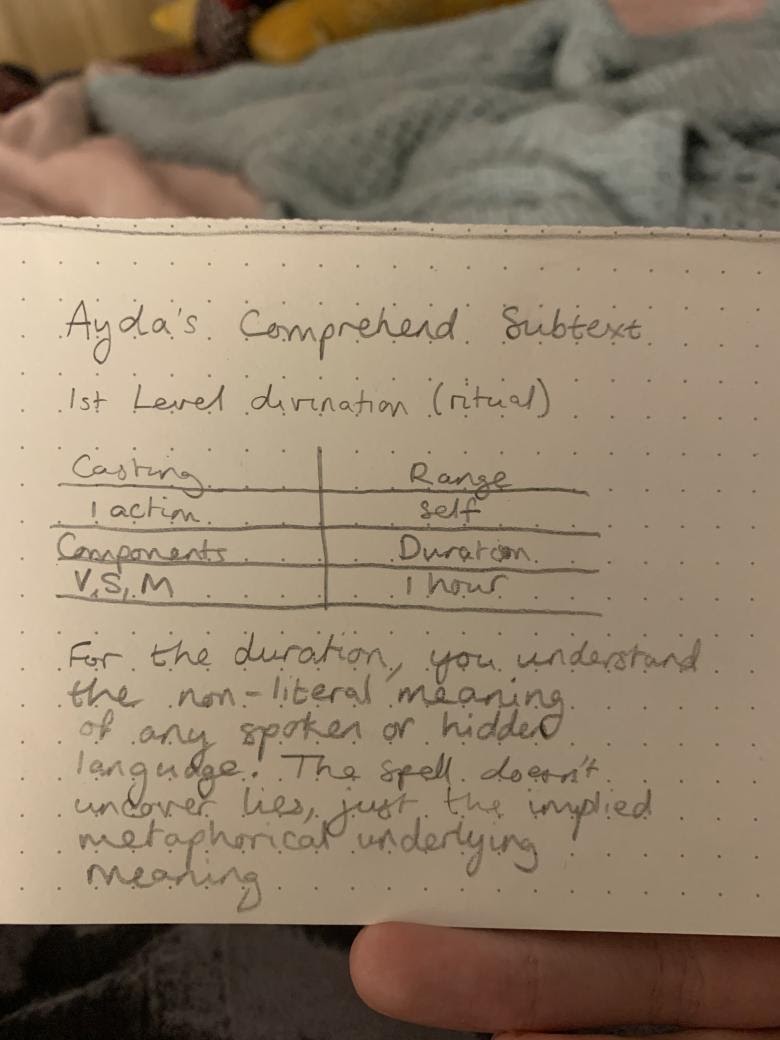 Ayda's Comprehend Subtext
1st Level divination (ritual)
Casting Range
1 action self
Components Duration
V,S,M 1 hour
For the duration, you understand
the non-literal meaning
of any spoken or hidden
language. The spell doesn't
uncover lies, just the implied
metaphorical underlying
meaning